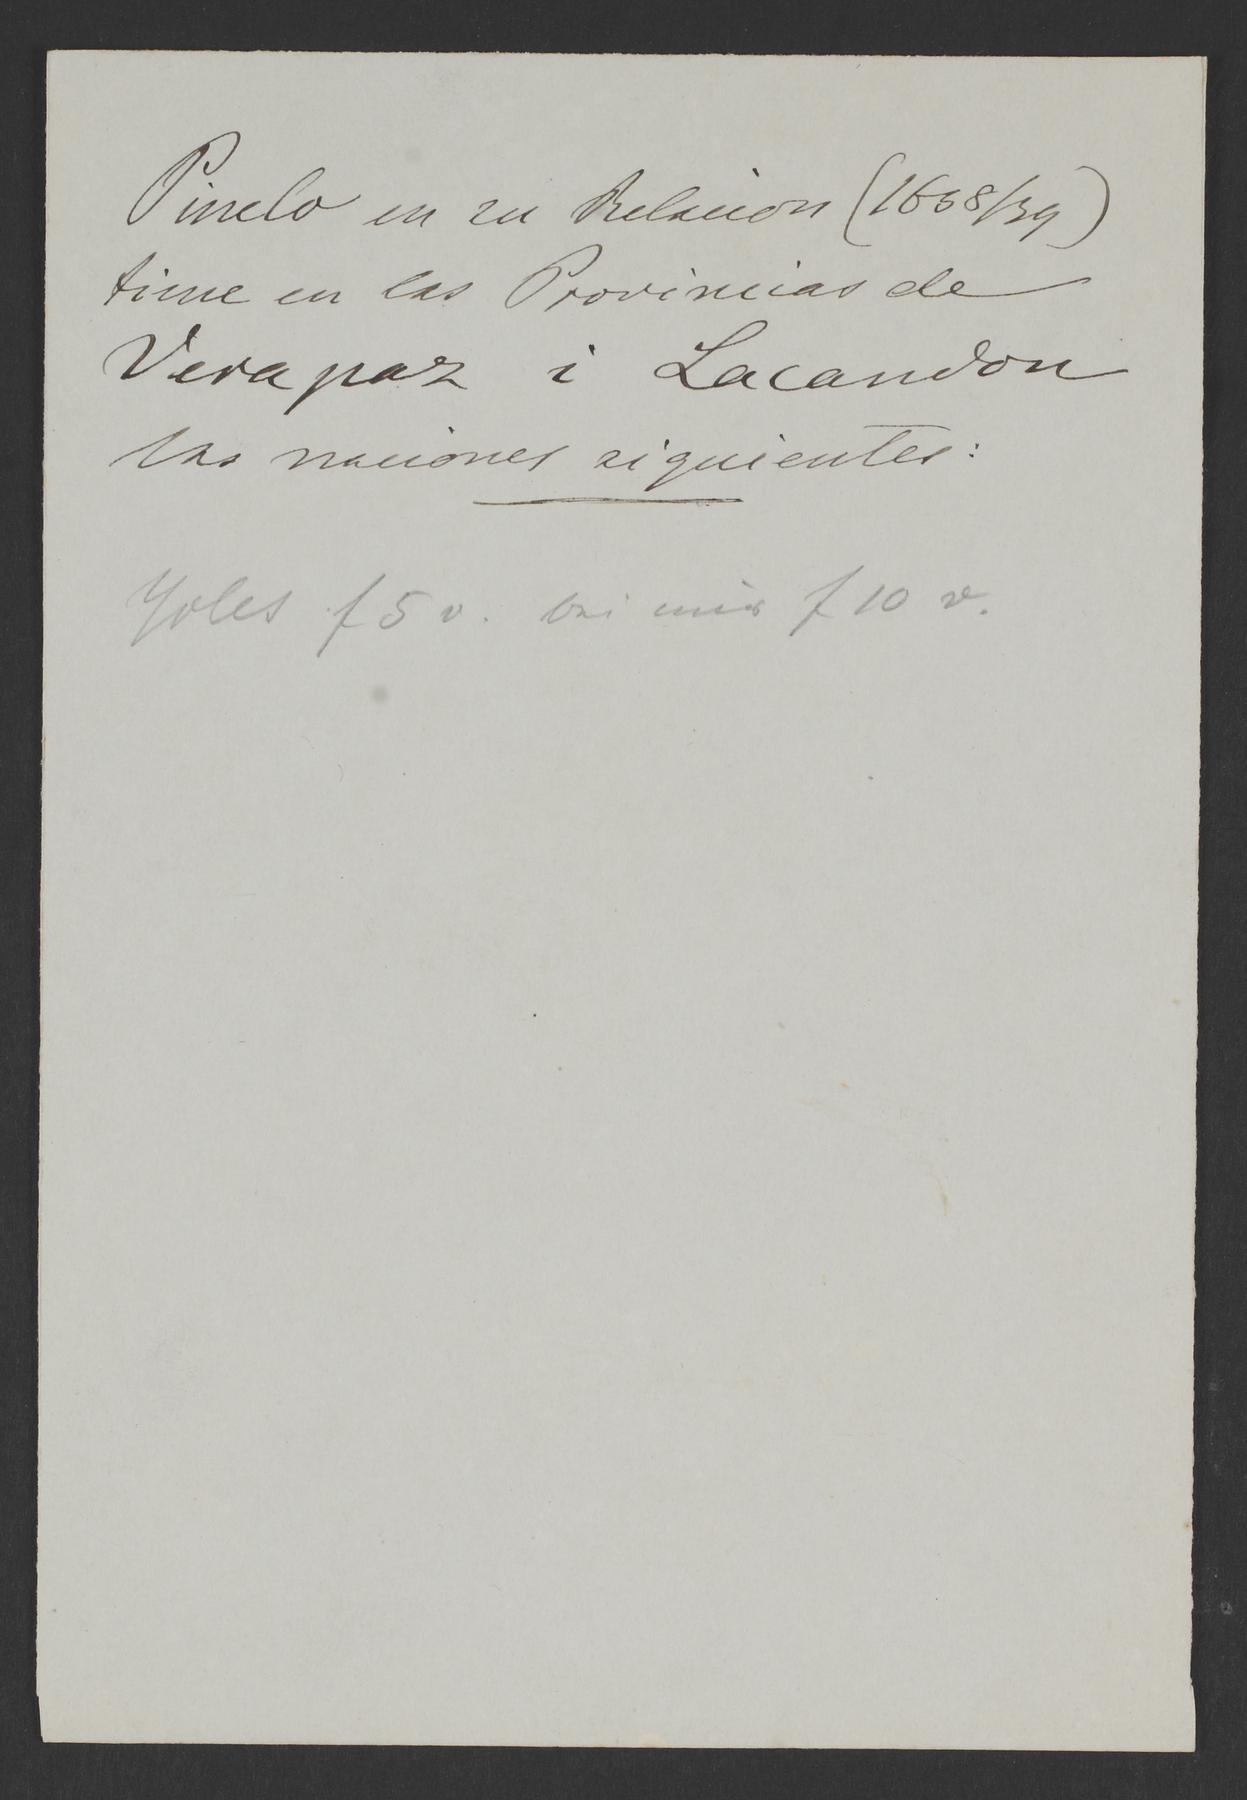 Pinelo en su Relacion (1638/39)
tiene en las Provincias de
Verapaz i Lacandon
las naciones siguientes:
Yoles f 5 v. bei mir f 10 v.